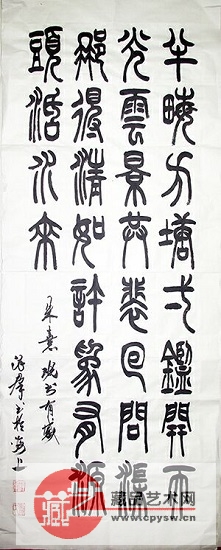 半畝方塘弌鑑開天
光雲景共裴回問渠
那得清如許為有源
頭活水來
朱熹觀書有感
群書於海上
藏
藏品艺术网
www.cpysw.cn